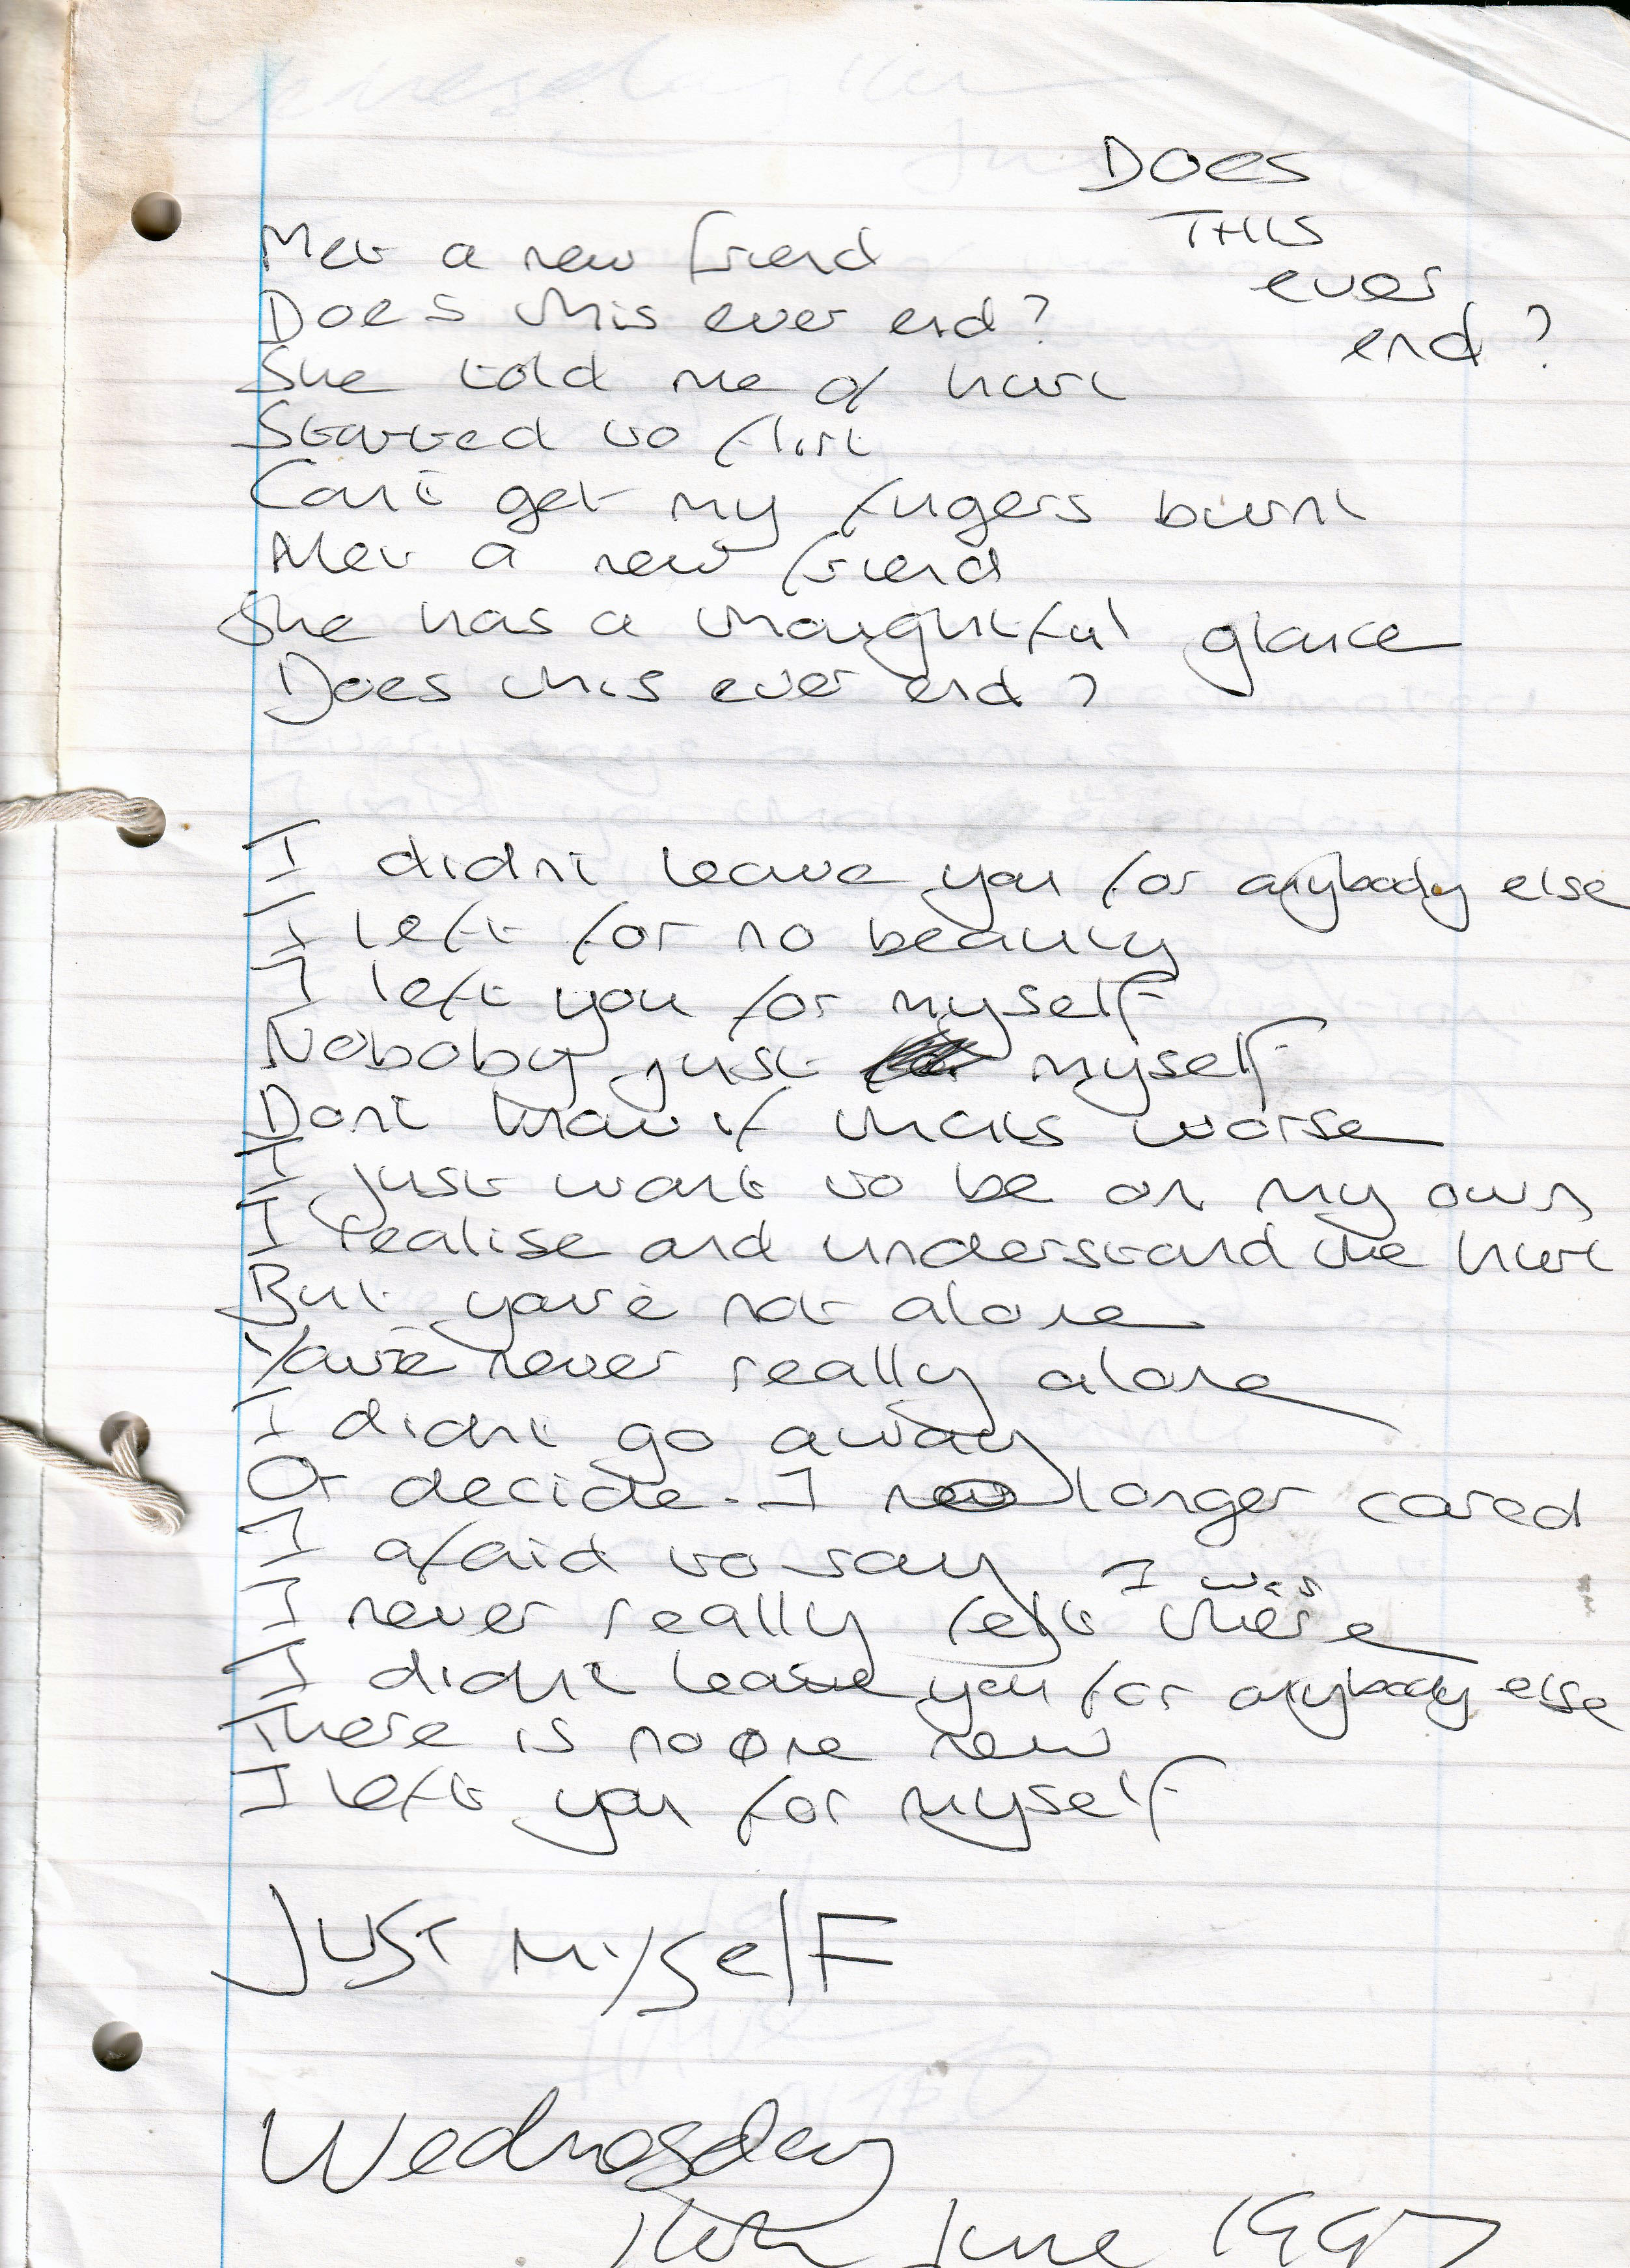 Does
THIS
ever
end?
Met a new friend
Does this ever end?
She told me of hurt
Started to flirt
Can't get my fingers burnt
Met a new friend
She has a thoughtful glance
Does this ever end?
I didnt leave you for anybody else
I left for no beauty
I left you for myself
Noboby just myself
Dont know if thats worse
I just want to be on my own
I realise and understand the hurt
But your'e not alone
Your'e never really alone
I didnt go away
Or decide I no longer cared
I afaid to say
I never really felt I was there
I didnt leave you for anybody else
There is no one new
I left you for myself
JUST MYSElF
Wednesday
June 1997